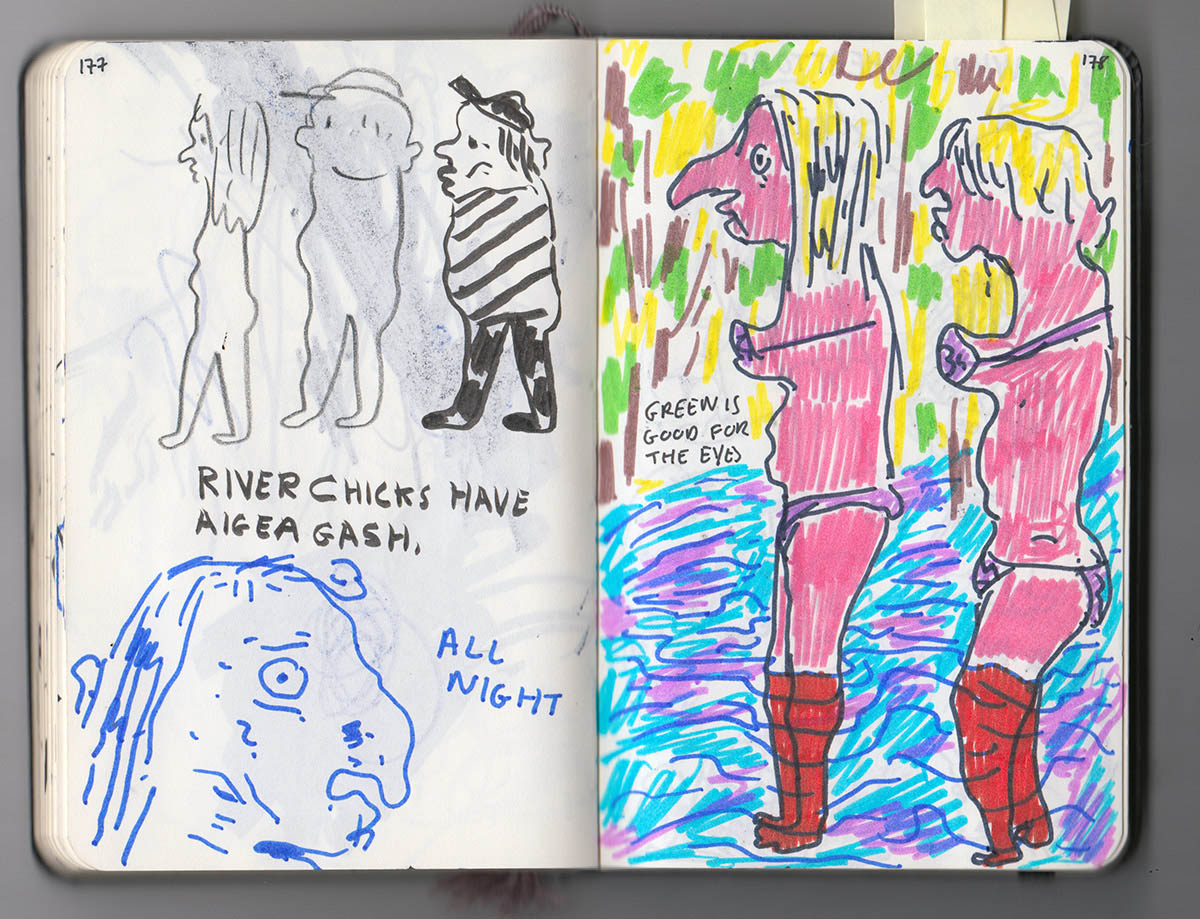 177
RIVER CHICKS HAVE
AIGEA GASH.
ALL
NIGHT
178
GREEN IS
GOOD FOR
THE EYES